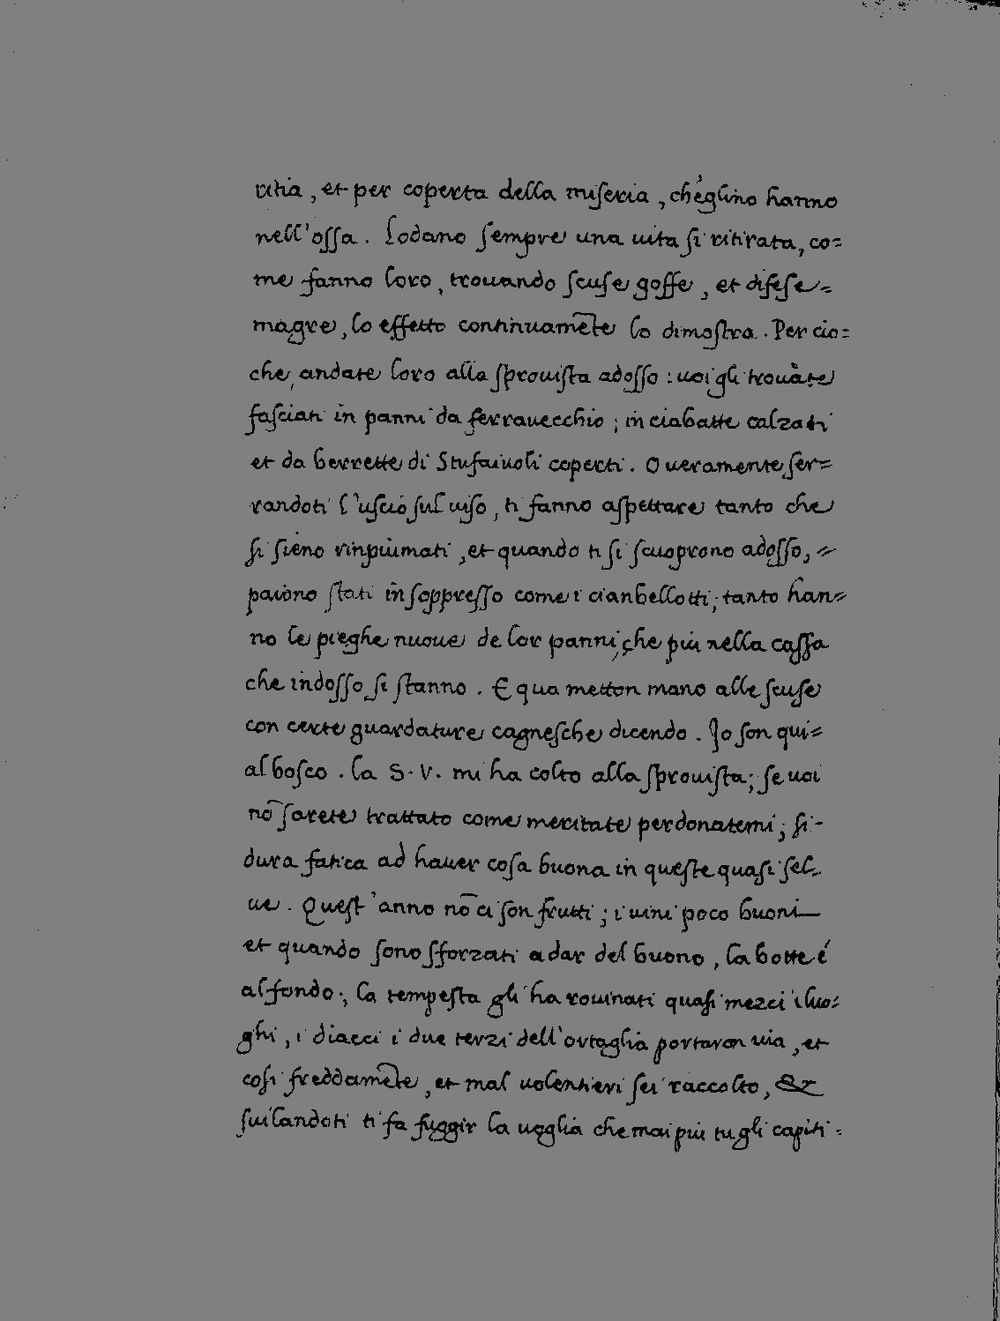 ritia, et per coperta della miseria, ch'eglino hanno
nell'ossa. Lodano sempre una uita si ritirata, co=
me fanno loro, trouando scuse goffe, et difese=
magre, lo effetto continuamēte lo dimostra. Per cio=
che, andate loro alla sprouista adosso: uoi gli trouate
fasciati in panni da ferrauecchio; in ciabatte calzati
et da berrette di Stufaiuoli coperti. O ueramente ser=
randoti l'uscio sul uiso, ti fanno aspettare tanto che
si sieno rinpiumati, et quando ti si scuoprono adosso, =
paiono stati in soppresso come i cianbellotti; tanto han=
no le pieghe nuoue de lor panni, che più nella cassa
che indosso si stanno. E qua metton mano alle scuse
con certe guardature cagnesche dicendo. Io son qui=
al bosco. la S. V. mi ha colto alla sprouista; se uoi
nō sarete trattato come meritate perdonatemi; si-
dura fatica ad hauer cosa buona in queste quasi sel=
ue. Quest'anno nō ci son frutti; i uini poco buoni
et quando sono sforzati a dar del buono, la botte é
al fondo; la tempesta gli ha rouinati quasi mezci i luo=
ghi, i diacci i due terzi dell'ortaglia portaron uia, et
cosi freddamēte, et mal uolentieri sei raccolto, &
suilandoti ti fa fuggir la uoglia che mai più tu gli capiti=